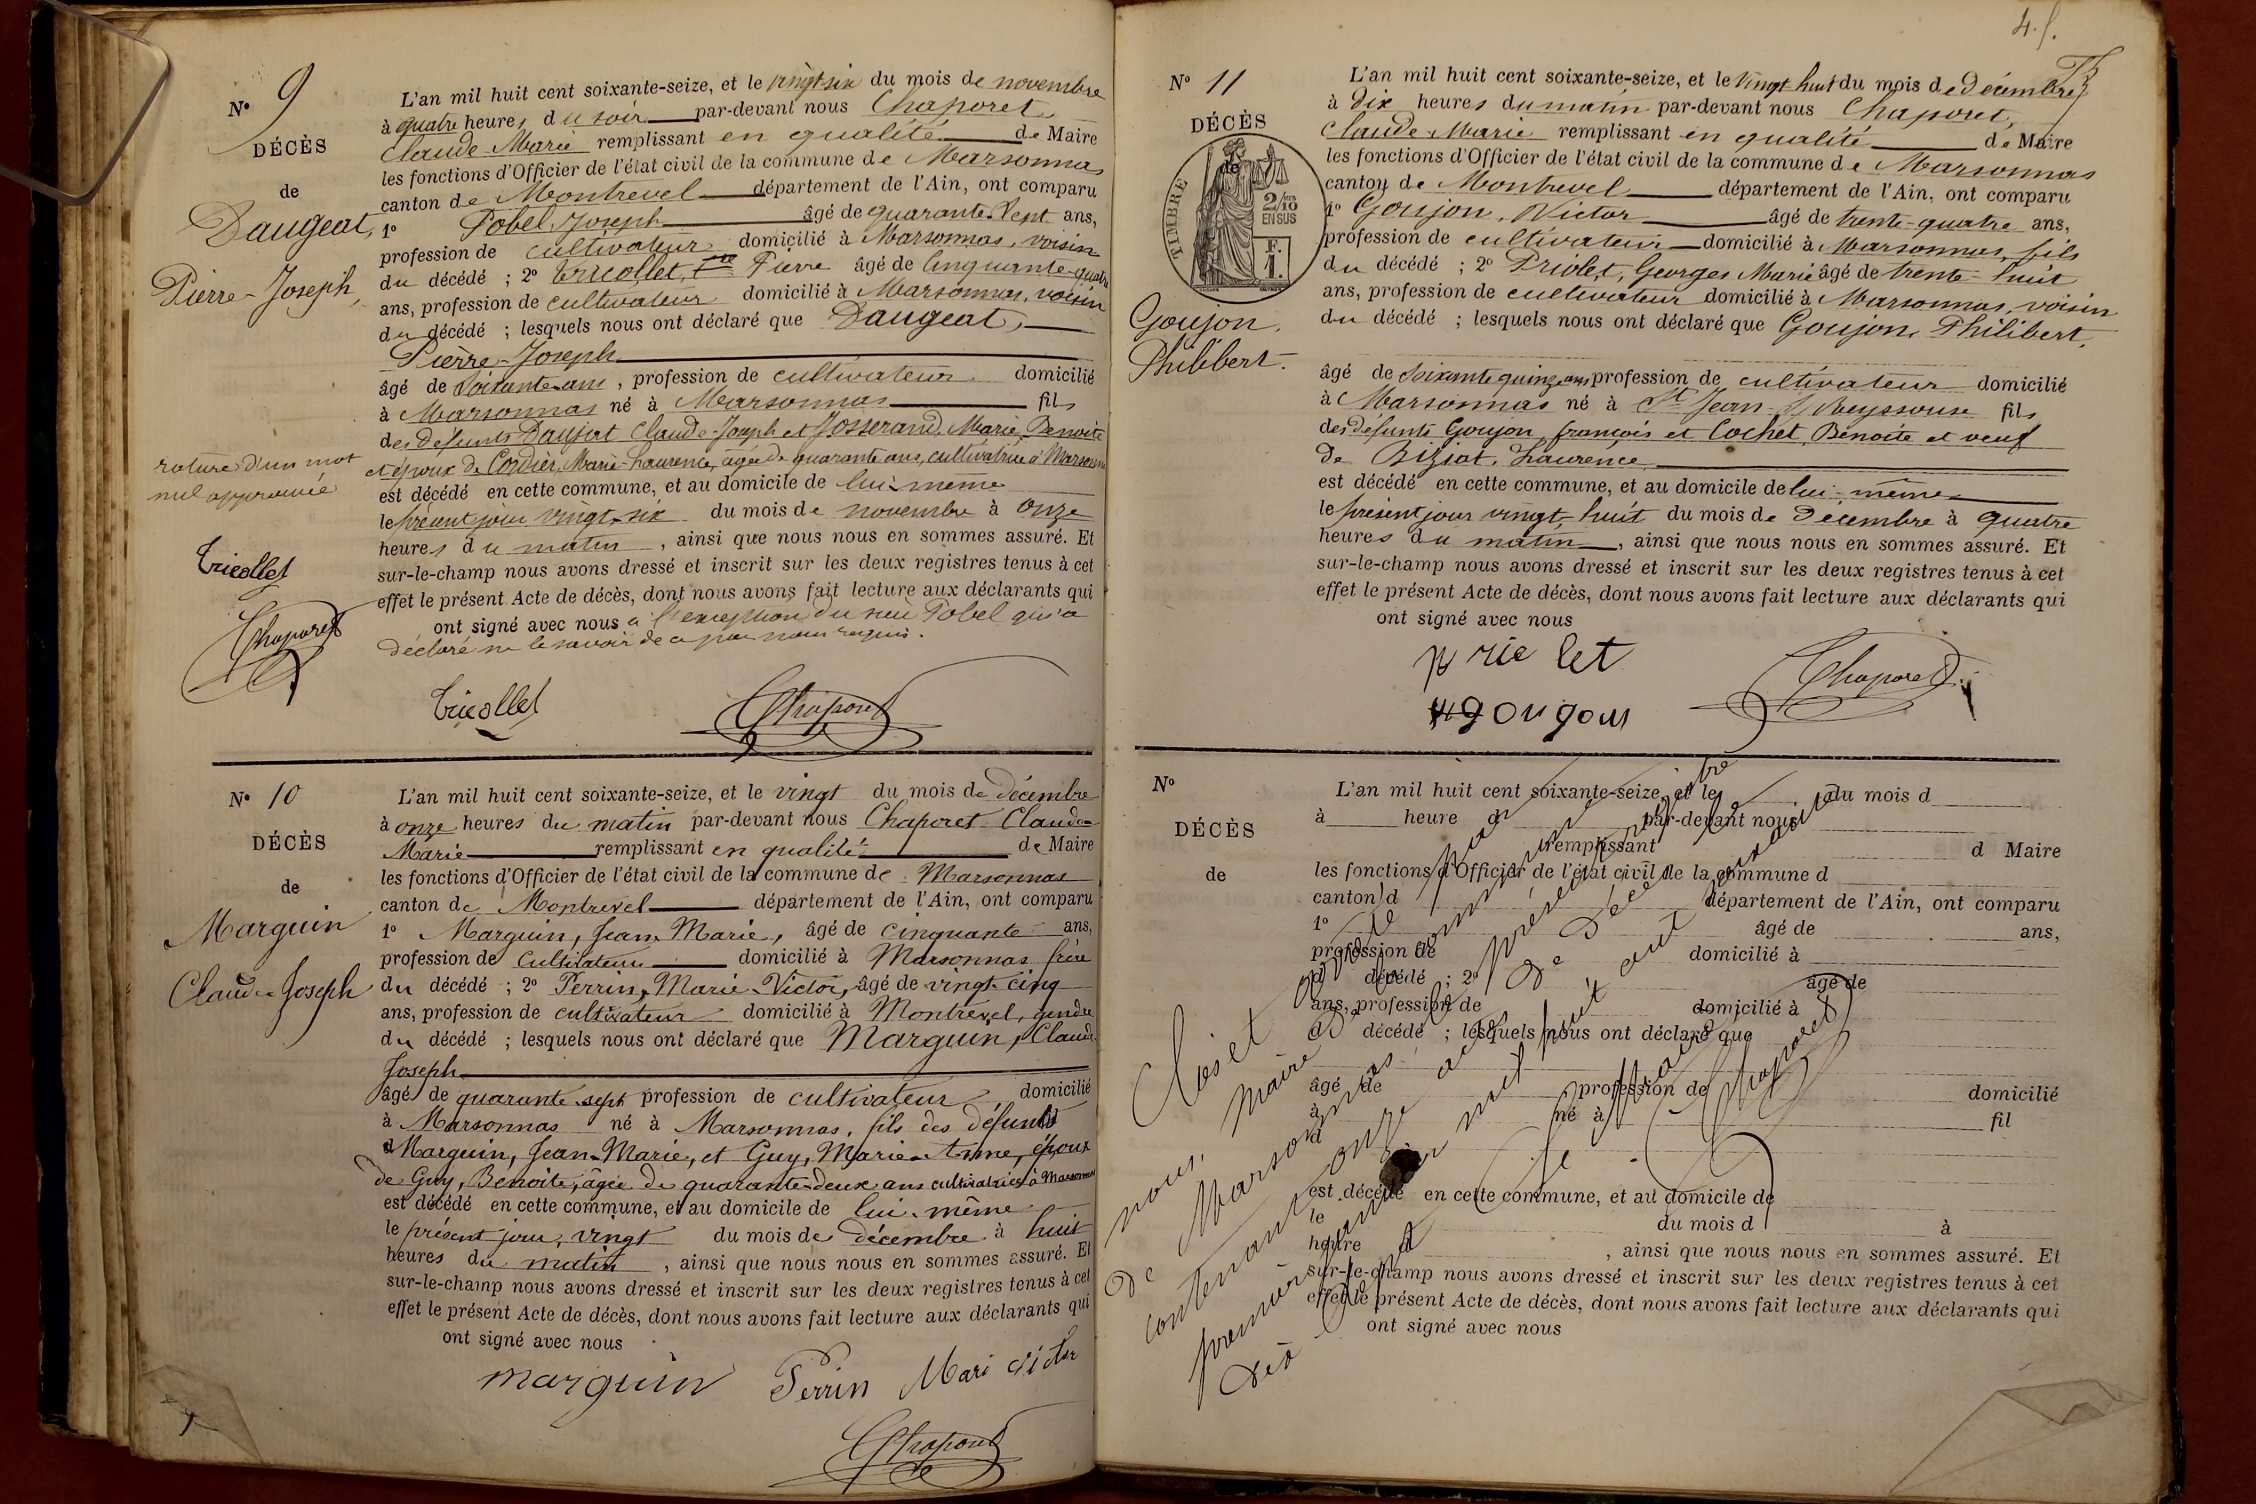 N° 9
DÉCÈS
de
Daugeat,
Pierre-Joseph,
L'an mil huit cent soixante-seize, et le vingt six du mois de novembre
à quatre heures du soir par-devant nous Chaporet,
Claude Marie remplissant en qualité de Maire
les fonctions d'Officier de l'état civil de la commune de Marsonnas
canton de Montrevel département de l'Ain, ont comparu
1° Pobel, Joseph âgé de quarante sept ans,
profession de cultivateur domicilié à Marsonnas, voisin
du décédé ; 2° Tricollet, Pierre âgé de cinquante-quatre
ans, profession de cultivateur domicilié à Marsonnas, voisin
du décédé ; lesquels nous ont déclaré que Daugeat,
Pierre-Joseph
âgé de soixante ans, profession de cultivateur domicilié
à Marsonnas né à Marsonnas fils
des défunts Daujat Claude-Joseph et Josserand, Marie, Benoite
et époux de Cordier, Marie-Laurence, âgée de quarante ans, cultivatrice à Marsonnas
est décédé en cette commune, et au domicile de lui-même
le présent jour vingt-six du mois de novembre à onze
heures du matin, ainsi que nous nous en sommes assuré. Et
sur-le-champ nous avons dressé et inscrit sur les deux registres tenus à cet
effet le présent Acte de décès, dont nous avons fait lecture aux déclarants qui
ont signé avec nous à l'exception du Pobel qui a
déclaré ne le savoir de ce par nous requis.
rature d'un mot
nul approuvée
Tricollet
Chaporet
Tricollet
Chaporet
N° 10
DÉCÈS
de
Marguin
Claude Joseph
L'an mil huit cent soixante-seize, et le vingt du mois de décembre
à onze heures du matin par-devant nous Chaporet Claude
Marie remplissant en qualité de Maire
les fonctions d'Officier de l'état civil de la commune de Marsonnas
canton de Montrevel département de l'Ain, ont comparu
1° Marguin, Jean Marie, âgé de cinquante ans,
profession de cultivateur domicilié à Marsonnas frère
du décédé ; 2° Perrin, Marie-Victor, âgé de vingt-cinq
ans, profession de cultivateur domicilié à Montrevel, gendre
du décédé ; lesquels nous ont déclaré que Marguin, Claude
Joseph
âgé de quarante-sept profession de cultivateur, domicilié
à Marsonnas né à Marsonnas, fils des défunts
Marguin, Jean-Marie, et Guy, Marie-Anne, époux
de Guy, Benoite, âgée de quarante-deux ans cultivatrice à Marsonnas
est décédé en cette commune, et au domicile de lui-même
le présent jour, vingt du mois de décembre à huit
heures du matin, ainsi que nous nous en sommes assuré. Et
sur-le-champ nous avons dressé et inscrit sur les deux registres tenus à cet
effet le présent Acte de décès, dont nous avons fait lecture aux déclarants qui
ont signé avec nous
marguin Perrin Mari victor
Chaporet
N° 11
DÉCÈS
de
TIMBRE
2/10
EN SUS
F.
1.
Goujon,
Philibert.
L'an mil huit cent soixante-seize, et le vingt huit du mois de Décembre
à dix heures du matin par-devant nous Chaporet,
Claude-Marie remplissant en qualité de Maire
les fonctions d'Officier de l'état civil de la commune de Marsonnas
canton de Montrevel département de l'Ain, ont comparu
1° Goujon, Victor âgé de trente-quatre ans,
profession de cultivateur domicilié à Marsonnas, fils
du décédé ; 2° Priolet, Georges Marie âgé de trente-huit
ans, profession de cultivateur domicilié à Marsonnas, voisin
du décédé ; lesquels nous ont déclaré que Goujon, Philibert,
âgé de soixante quinze ans profession de cultivateur domicilié
à Marsonnas né à St Jean-S/Reyssouse fils
des défunts Goujon, françois et Cochet, Benoite et veuf
de Biziat, Laurence
est décédé en cette commune, et au domicile de lui-même
le présent jour vingt-huit du mois de Décembre à quatre
heures du matin, ainsi que nous nous en sommes assuré. Et
sur-le-champ nous avons dressé et inscrit sur les deux registres tenus à cet
effet le présent Acte de décès, dont nous avons fait lecture aux déclarants qui
ont signé avec nous
priolet
gougon
Chaporet
N°
DÉCÈS
de
L'an mil huit cent soixante-seize, et le du mois d
à heure d par-devant nous
remplissant d Maire
les fonctions d'Officier de l'état civil de la commune d
canton d département de l'Ain, ont comparu
1° âgé de ans,
profession de domicilié à
d décédé ; 2° âgé de
ans, profession de domicilié à
d décédé ; lesquels nous ont déclaré que
âgé de profession de domicilié
à né à fil
d
est décédé en cette commune, et au domicile de
le du mois d à
heure d , ainsi que nous nous en sommes assuré. Et
sur-le-champ nous avons dressé et inscrit sur les deux registres tenus à cet
effet le présent Acte de décès, dont nous avons fait lecture aux déclarants qui
ont signé avec nous
Clos et arrêté par
nous, Maire de la commune
de Marsonnas, le présent registre
contenant onze actes de décès le
premier janvier mil huit cent soixante
dix sept
Le Maire,
Chaporet